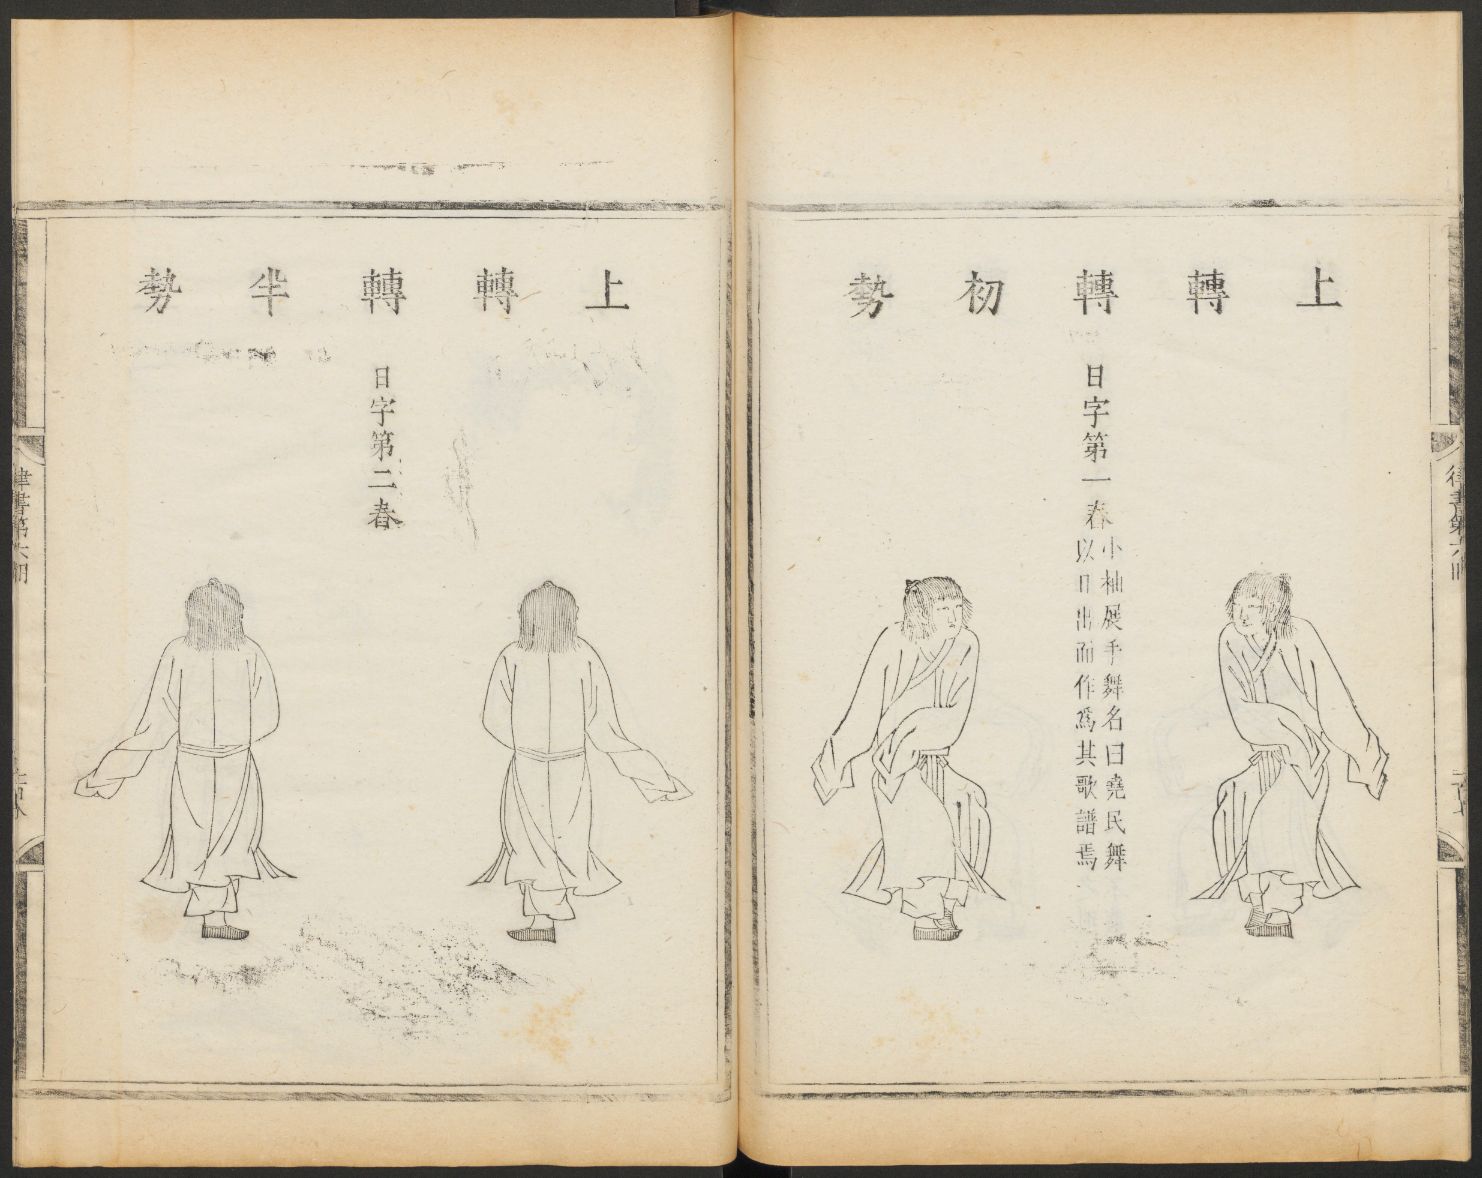 上轉轉初勢
日字第一春
小袖展手舞名曰堯民舞
以日出而作爲其歌譜焉
上轉轉半勢
日字第二春
律書第六冊